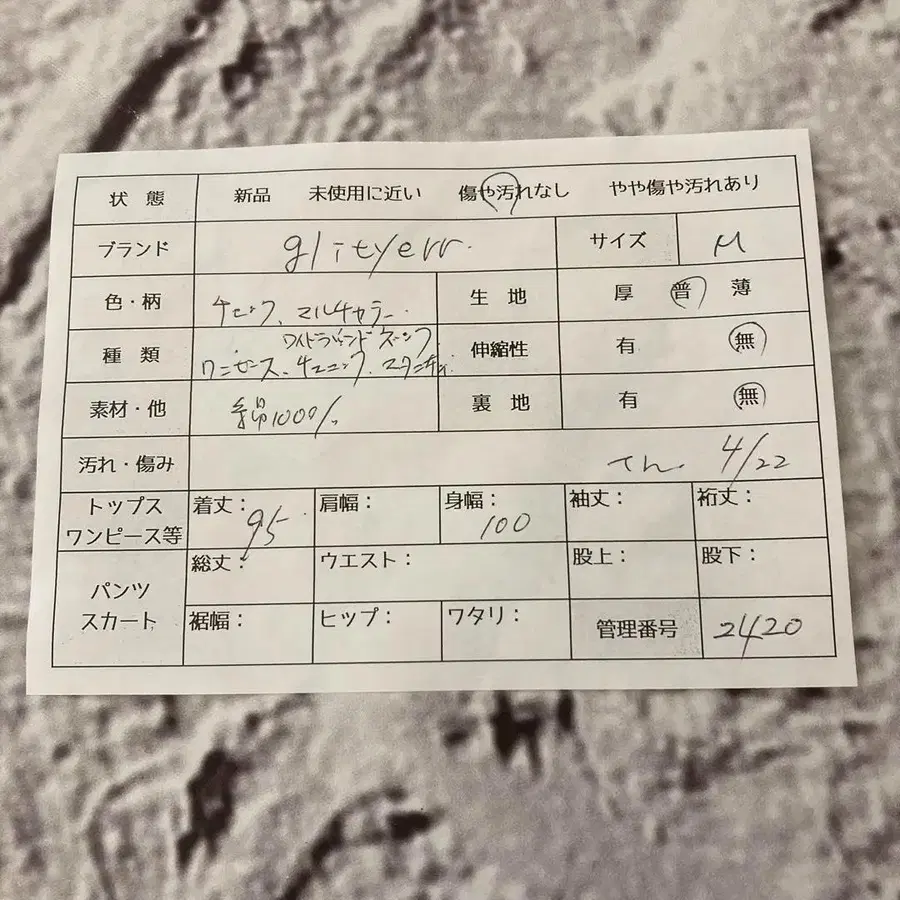 状態 新品 未使用に近い 傷や汚れなし やや傷や汚れあり
ブランド glityerr. サイズ M
色・柄 チェック、マルチカラー 生地 厚 普 薄
種類 ワンピース、チュニック、 伸縮性 有 無
素材・他 綿100% 裏地 有 無
汚れ・傷み 4/22
トップス ワンピース等 着丈: 95 肩幅: 身幅: 100 袖丈: 裄丈:
パンツ スカート 総丈: ウエスト: 股上: 股下:
裾幅: ヒップ: ワタリ: 管理番号 2420